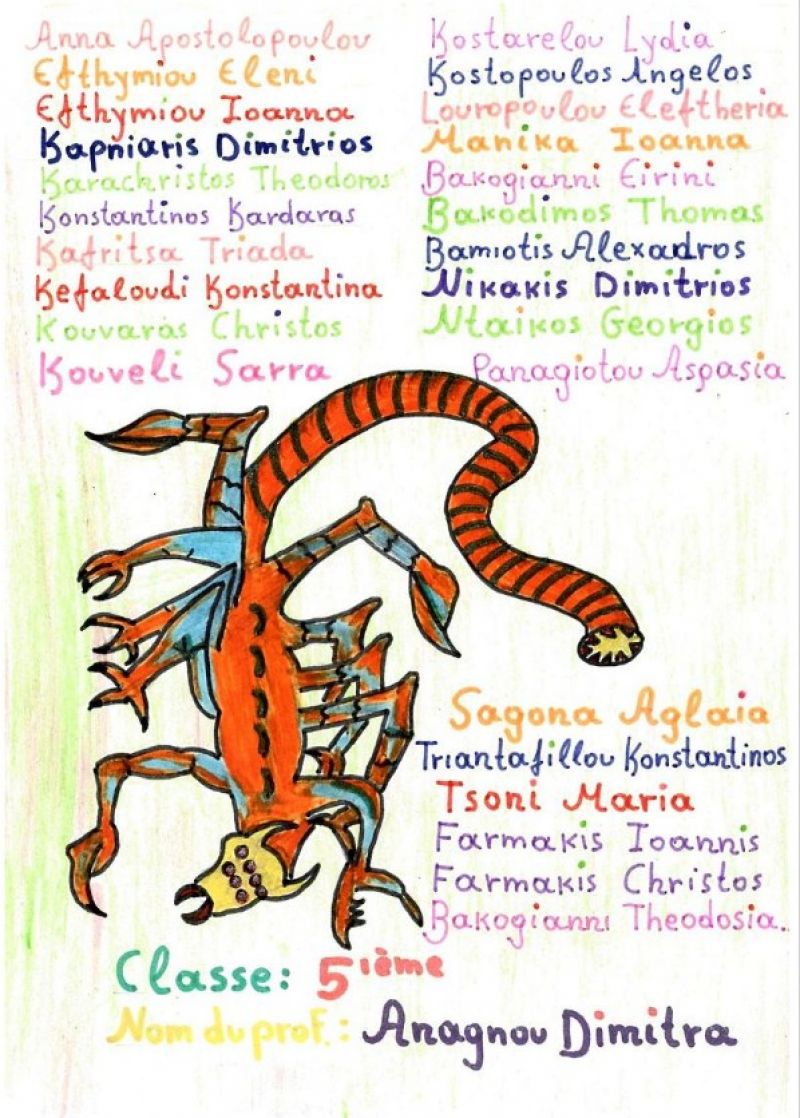 Anna Apostolopoulou
Efthymiou Eleni
Efthymiou Ioanna
Kapniaris Dimitrios
Karachristos Theodoros
Konstantinos Kardaras
Kafritsa Triada
Kefaloudi Konstantina
Kouvaras Christos
Kouveli Sarra
Kostarelou Lydia
Kostopoulos Angelos
Louropoulou Eleftheria
Manika Ioanna
Bakogianni Eirini
Bakodimos Thomas
Bamiotis Alexadros
Nikakis Dimitrios
Ntaikos Georgios
Panagiotou Aspasia
Sagona Aglaia
Triantafillou Konstantinos
Tsoni Maria
Farmakis Ioannis
Farmakis Christos
Bakogianni Theodosia.
Classe: 5ième
Nom du prof.: Anagnou Dimitra